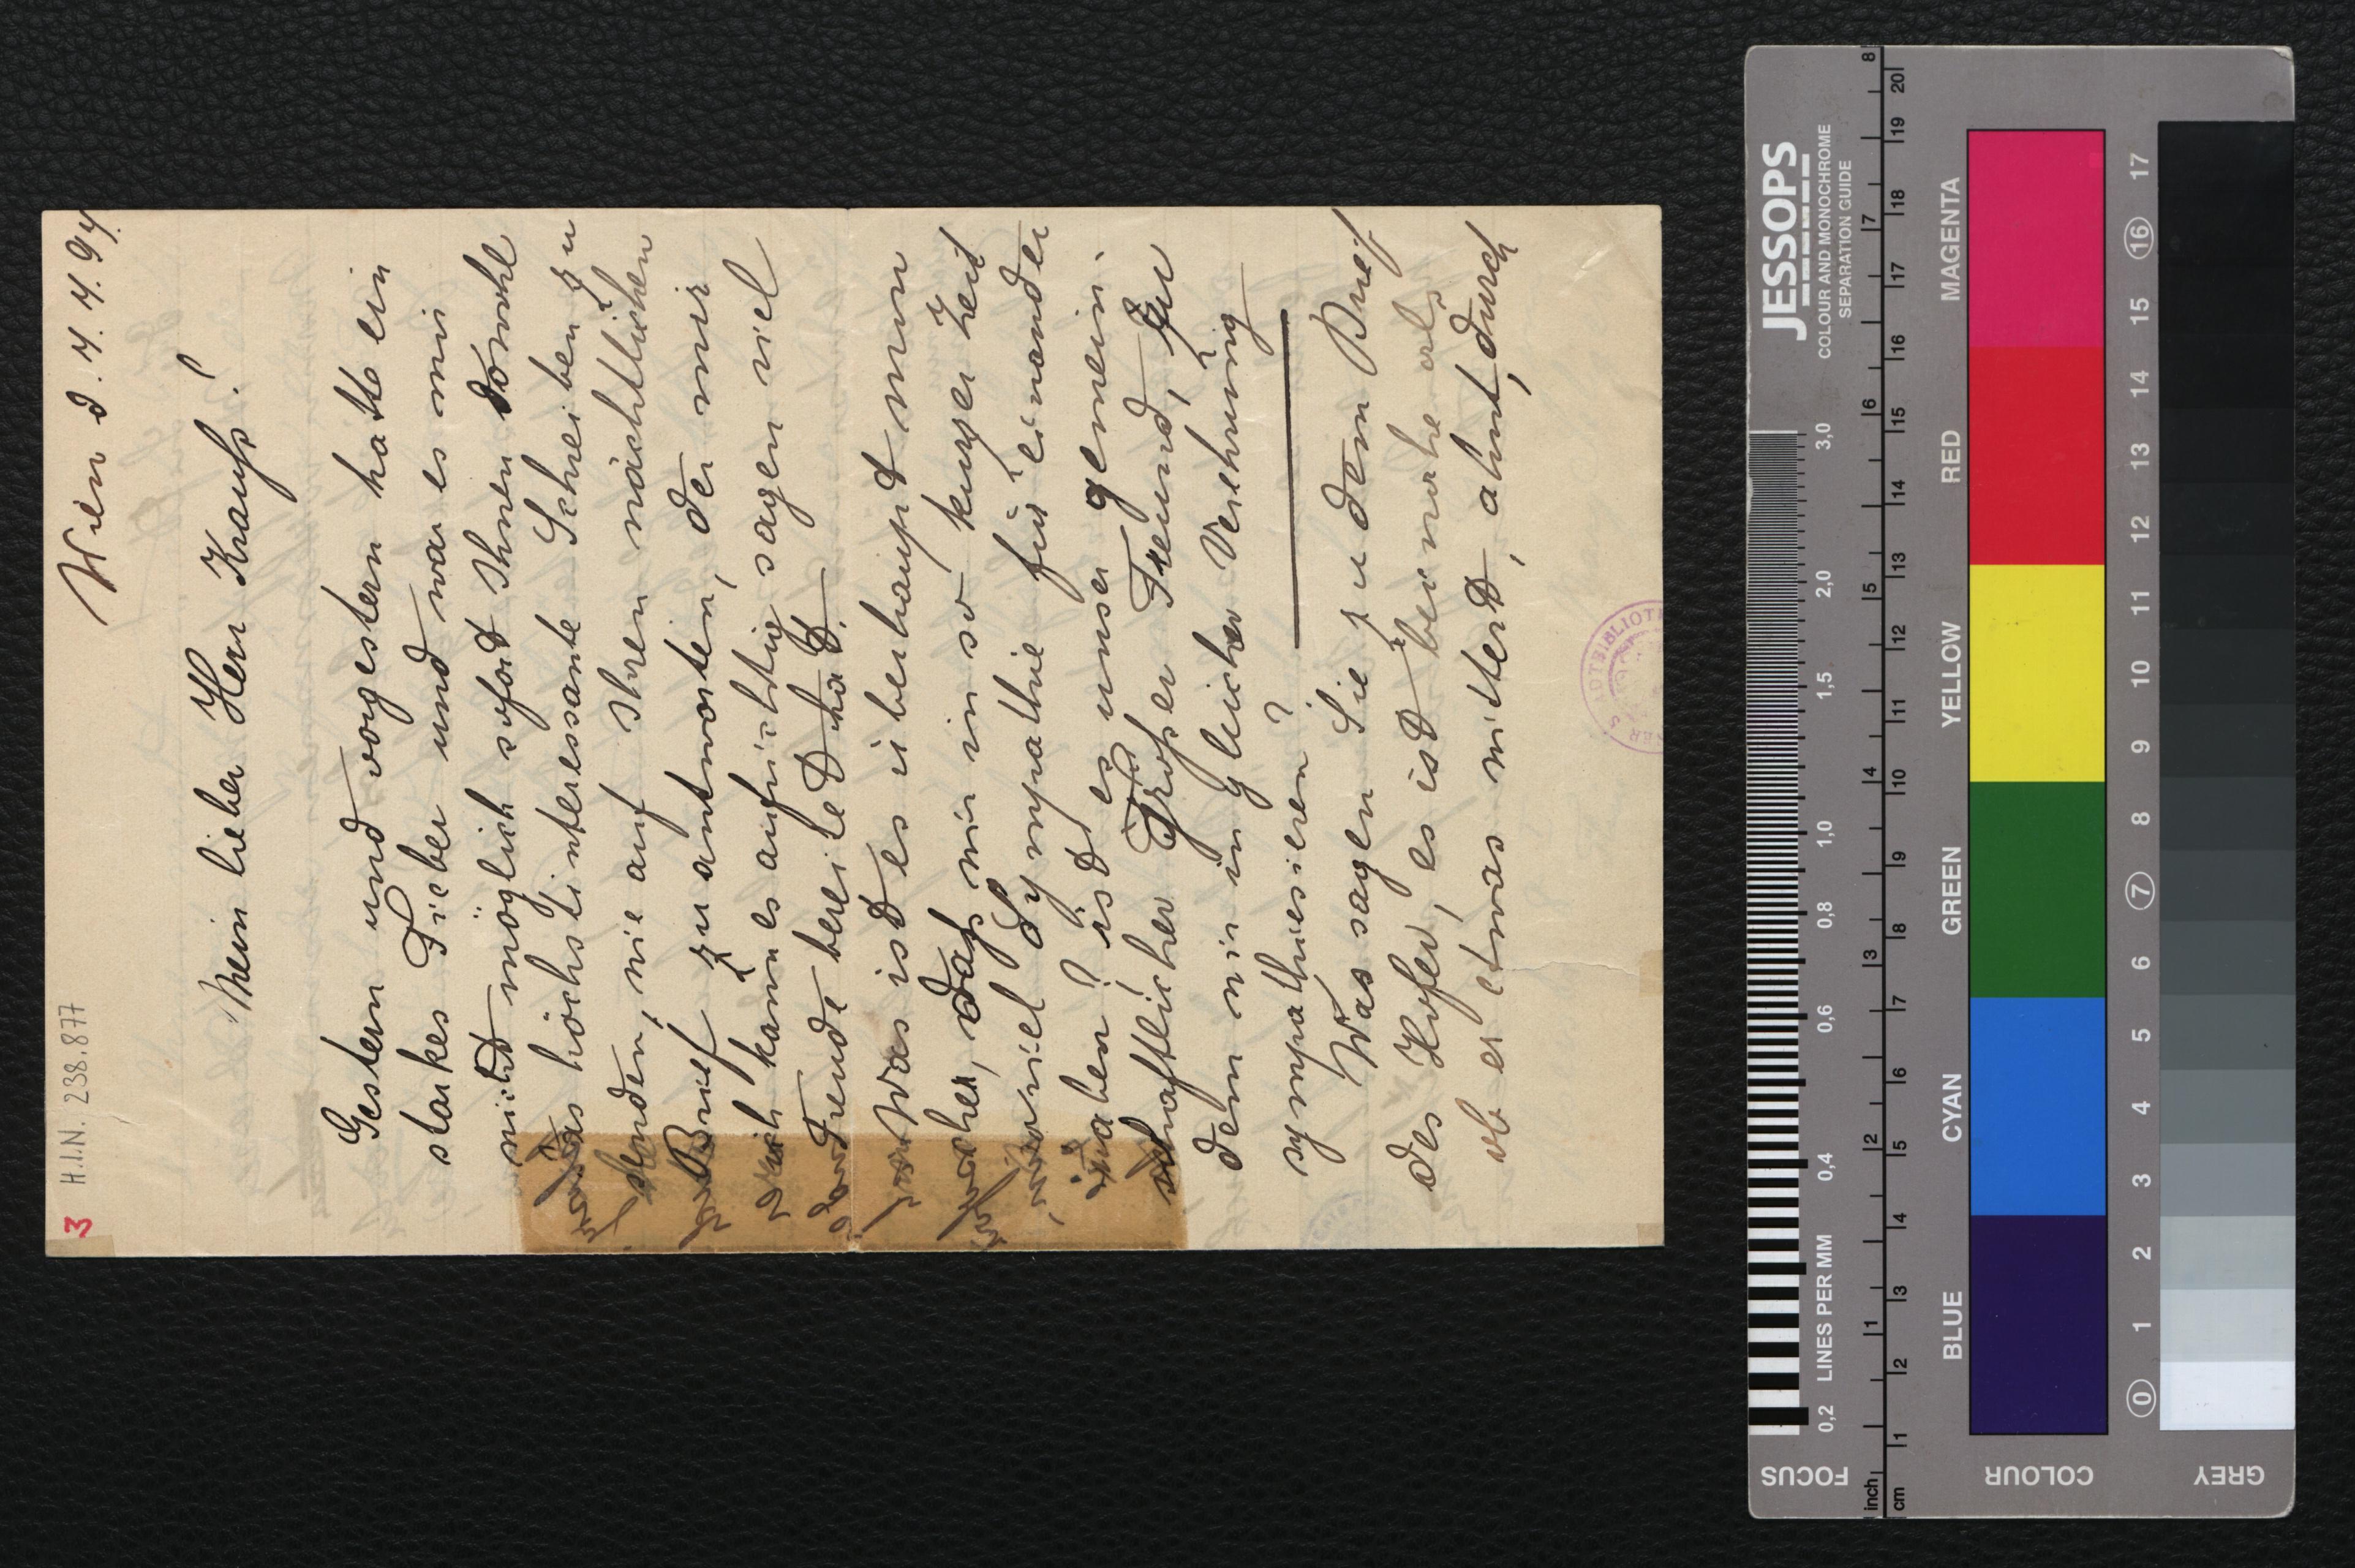 3
H.I.N. 238.877
Wien d. 4. 4. 94.
Mein lieber Herr Krauß!
Gestern und vorgestern hatte ein
starkes Fieber und war es mir
nicht möglich sofort Ihnen sowohl
das höchst interessante Schreiben zu
senden, wie auf Ihren nächtlichen
Brief zu antworten, der mir
ich kann es aufrichtig sagen viel
Freude bereitet hat.
Was ist es überhaupt nun
her, daß wir in so kurzer Zeit
soviel Sympathie für einander
haben? ist es unser gemein
schaftlicher Großer Freund, zu
dem wir in gleicher Verehrung
sympathiesieren?
Was sagen Sie zu dem Brief
des Hofer, es ist beinahe als
ob er etwas wittert, ahnt, durch
JESSOPS
COLOUR AND MONOCHROME
SEPARATION GUIDE
FOCUS
0,2 LINES PER MM 0,4 0,6 0,8 1,0 1,5 2,0 3,0
inch 1 2 3 4 5 6 7 8
cm 1 2 3 4 5 6 7 8 9 10 11 12 13 14 15 16 17 18 19 20
COLOUR
BLUE CYAN GREEN YELLOW RED MAGENTA
GREY
0 1 2 3 4 5 6 7 8 9 10 11 12 13 14 15 16 17